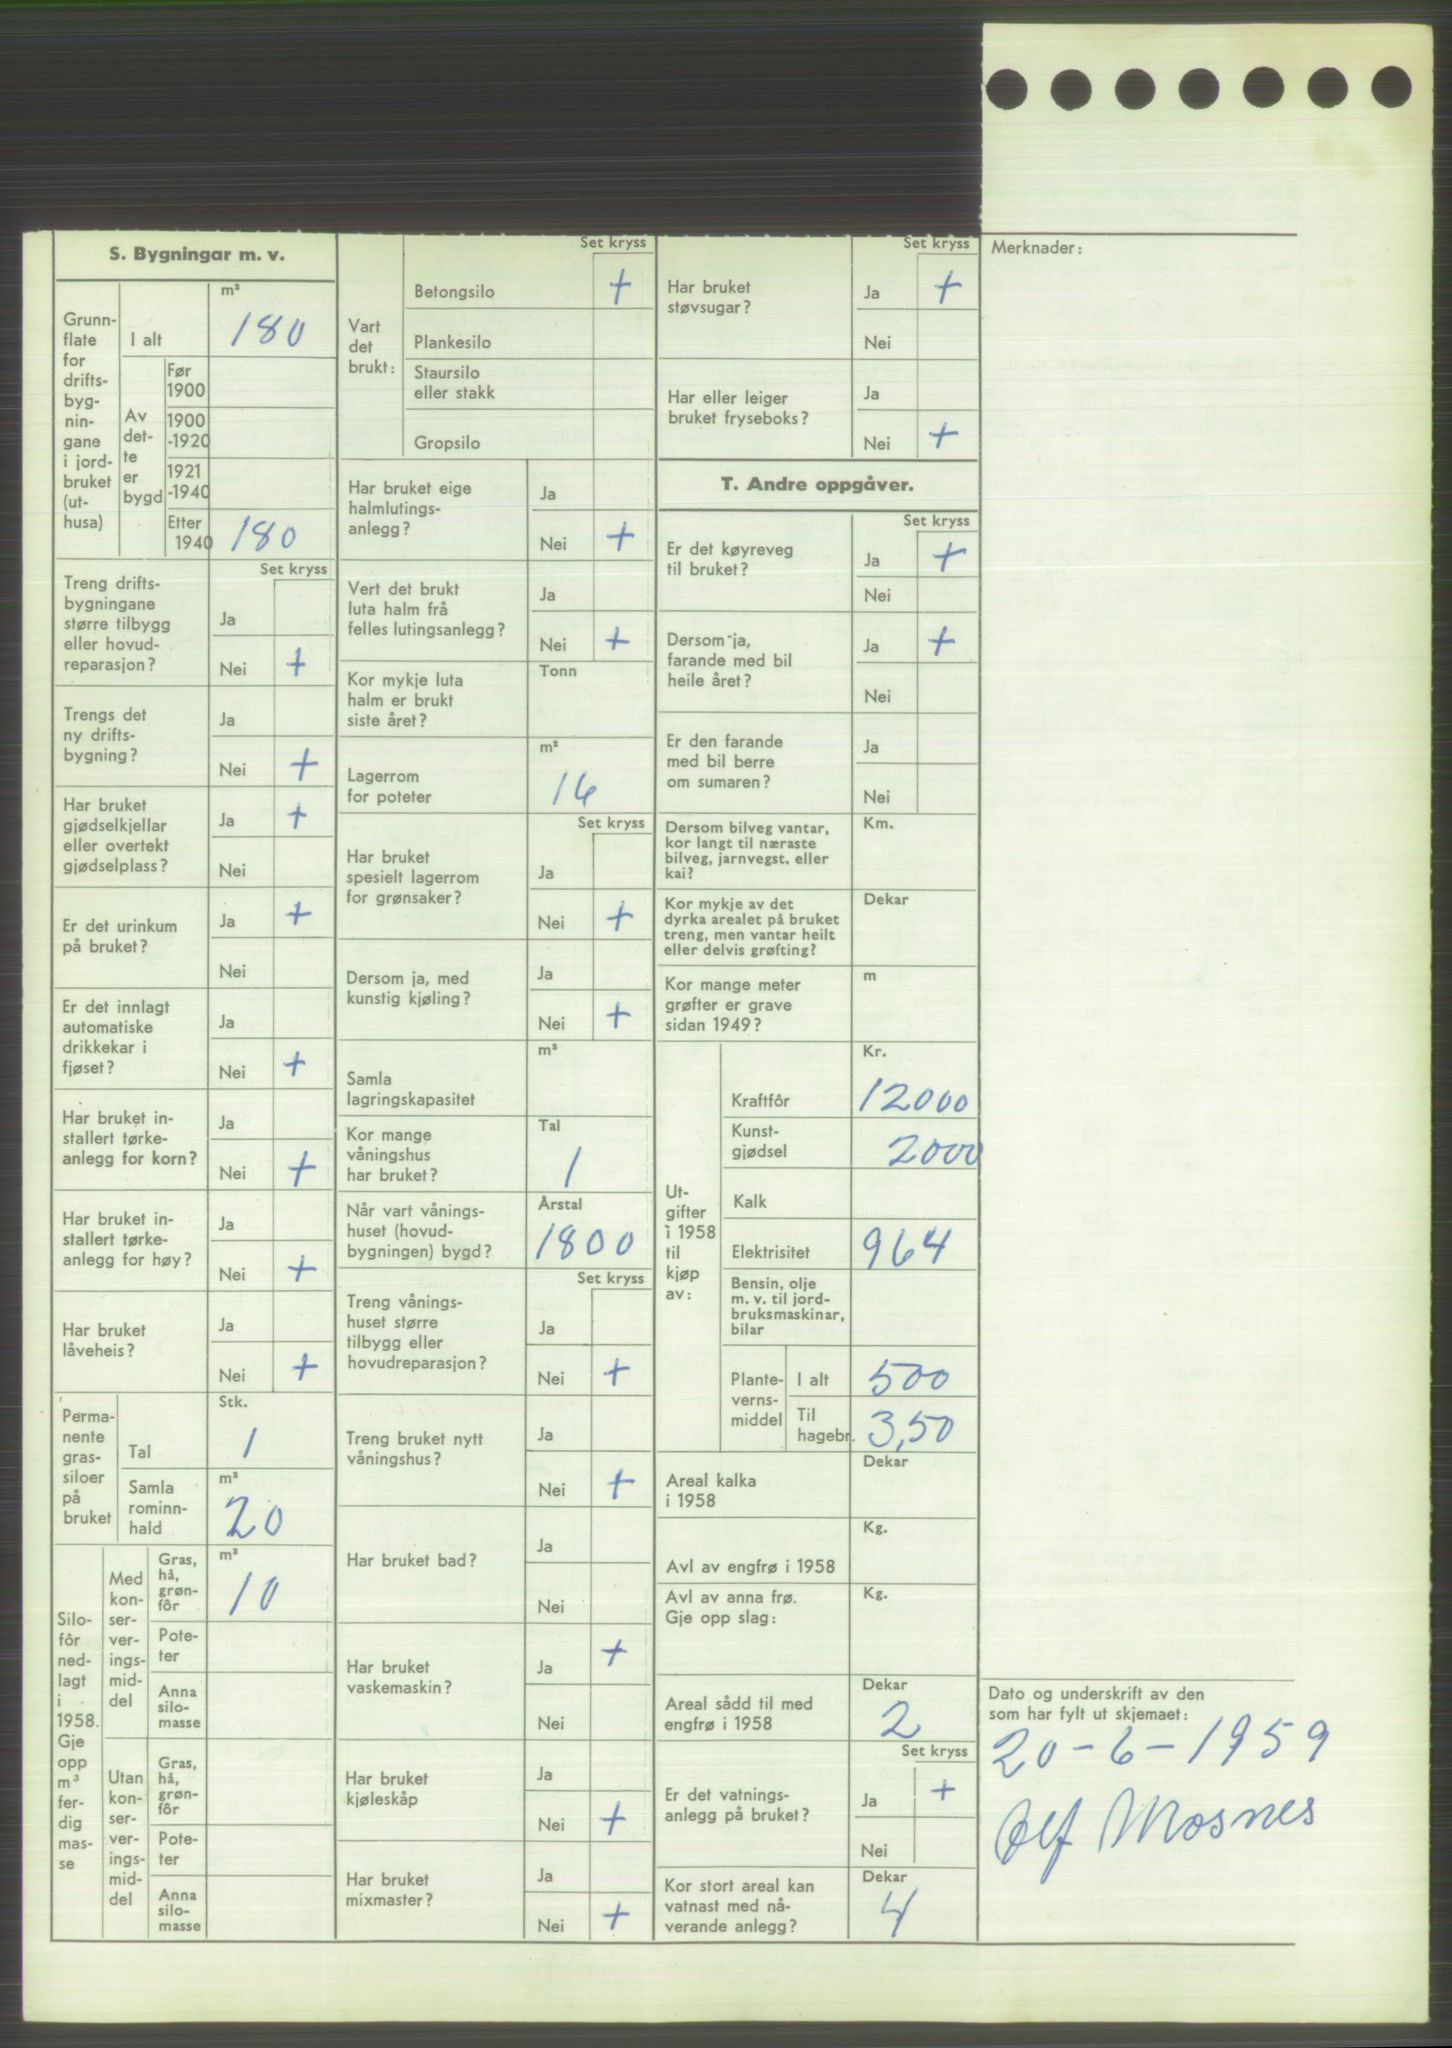 S. Bygningar m. v.
Grunn-
flate
for
drifts-
byg-
nin-
gane
i jord-
bruket
(ut-
husa)
I alt
m²
180
Av
det-
te
er
bygd
Før
1900
1900
-1920
1921
-1940
Etter
1940
180
Set kryss
Treng drifts-
bygningane
større tilbygg
eller hovud-
reparasjon?
Ja
Nei +
Trengs det
ny drifts-
bygning?
Ja
Nei +
Har bruket
gjødselkjellar
eller overtekt
gjødselplass?
Ja +
Nei
Er det urinkum
på bruket?
Ja +
Nei
Er det innlagt
automatiske
drikkekar i
fjøset?
Ja
Nei +
Har bruket in-
stallert tørke-
anlegg for korn?
Ja
Nei +
Har bruket in-
stallert tørke-
anlegg for høy?
Ja
Nei +
Har bruket
låveheis?
Ja
Nei +
Perma-
nente
gras-
siloer
på
bruket
Stk.
Tal 1
Samla
rominn-
hald
m³
20
Silo-
fôr
ned-
lagt
i
1958.
Gje
opp
m³
fer-
dig
mas-
se
Med
kon-
ser-
ver-
ings-
mid-
del
Gras,
hå,
grøn-
fôr
m³
10
Pote-
ter
Anna
silo-
masse
Utan
kon-
ser-
ver-
ings-
mid-
del
Gras,
hå,
grøn-
fôr
Pote-
ter
Anna
silo-
masse
Set kryss
Vart
det
brukt:
Betongsilo +
Plankesilo
Staursilo
eller stakk
Gropsilo
Har bruket eige
halmlutings-
anlegg?
Ja
Nei +
Vert det brukt
luta halm frå
felles lutingsanlegg?
Ja
Nei +
Kor mykje luta
halm er brukt
siste året?
Tonn
Lagerrom
for poteter
m²
16
Set kryss
Har bruket
spesielt lagerrom
for grønsaker?
Ja
Nei +
Dersom ja, med
kunstig kjøling?
Ja
Nei +
Samla
lagringskapasitet
m³
Kor mange
våningshus
har bruket?
Tal
1
Når vart vånings-
huset (hovud-
bygningen) bygd?
Årstal
1800
Set kryss
Treng vånings-
huset større
tilbygg eller
hovudreparasjon?
Ja
Nei +
Treng bruket nytt
våningshus?
Ja
Nei +
Har bruket bad?
Ja
Nei
Har bruket
vaskemaskin?
Ja +
Nei
Har bruket
kjøleskåp
Ja
Nei +
Har bruket
mixmaster?
Ja
Nei +
Set kryss
Har bruket
støvsugar?
Ja +
Nei
Har eller leiger
bruket fryseboks?
Ja
Nei +
T. Andre oppgåver.
Set kryss
Er det køyreveg
til bruket?
Ja +
Nei
Dersom ja,
farande med bil
heile året?
Ja +
Nei
Er den farande
med bil berre
om sumaren?
Ja
Nei
Dersom bilveg vantar,
kor langt til næraste
bilveg, jarnvegst. eller
kai?
Km.
Kor mykje av det
dyrka arealet på bruket
treng, men vantar heilt
eller delvis grøfting?
Dekar
Kor mange meter
grøfter er grave
sidan 1949?
m
Ut-
gifter
i 1958
til
kjøp
av:
Kr.
Kraftfôr 12000
Kunst-
gjødsel 2000
Kalk
Elektrisitet 964
Bensin, olje
m. v. til jord-
bruksmaskinar,
bilar
Plante-
verns-
middel
I alt 500
Til
hagebr. 3,50
Areal kalka
i 1958
Dekar
Avl av engfrø i 1958
Kg.
Avl av anna frø.
Gje opp slag:
Kg.
Areal sådd til med
engfrø i 1958
Dekar
2
Set kryss
Er det vatnings-
anlegg på bruket?
Ja +
Nei
Kor stort areal kan
vatnast med nå-
verande anlegg?
Dekar
4
Merknader:
Dato og underskrift av den
som har fylt ut skjemaet:
20-6-1959
Olf Mosnes